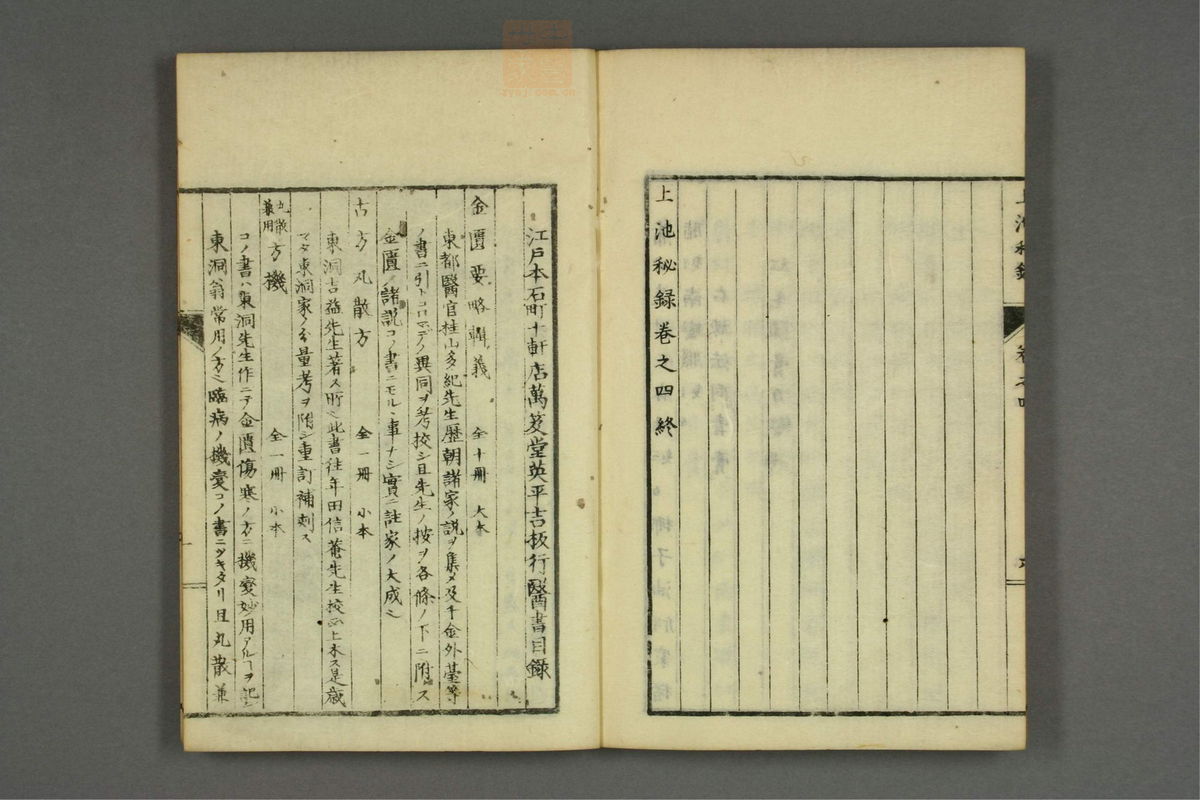 上池秘録
卷之四
上池秘録卷之四終
江戸本石町十軒店萬笈堂英平吉板行醫書目録
金匱要略輯義 全十冊 大本
東都醫官桂山多紀先生歴朝諸家ノ説ヲ集メ及千金外䑓等
ノ書ニ引トコロマデノ異同ヲ考校シ且先生ノ按ヲ各條ノ下ニ附ス
金匱ノ諸説コノ書ニモルヽ事ナシ實ニ註家ノ大成也
古方丸散方 全一冊 小本
東洞吉益先生著ス所也此書往年田信菴先生校正上木ス是歳
マタ東洞家ノ分量考ヲ附シ重訂補刻ス
丸散兼用方機 全一冊 小本
コノ書ハ東洞先生作ニテ金匱傷寒ノ方ニ機変妙用アルヿヲ記シ
東洞翁常用ノ方也臨病ノ機変コノ書ニツキタリ且丸散兼